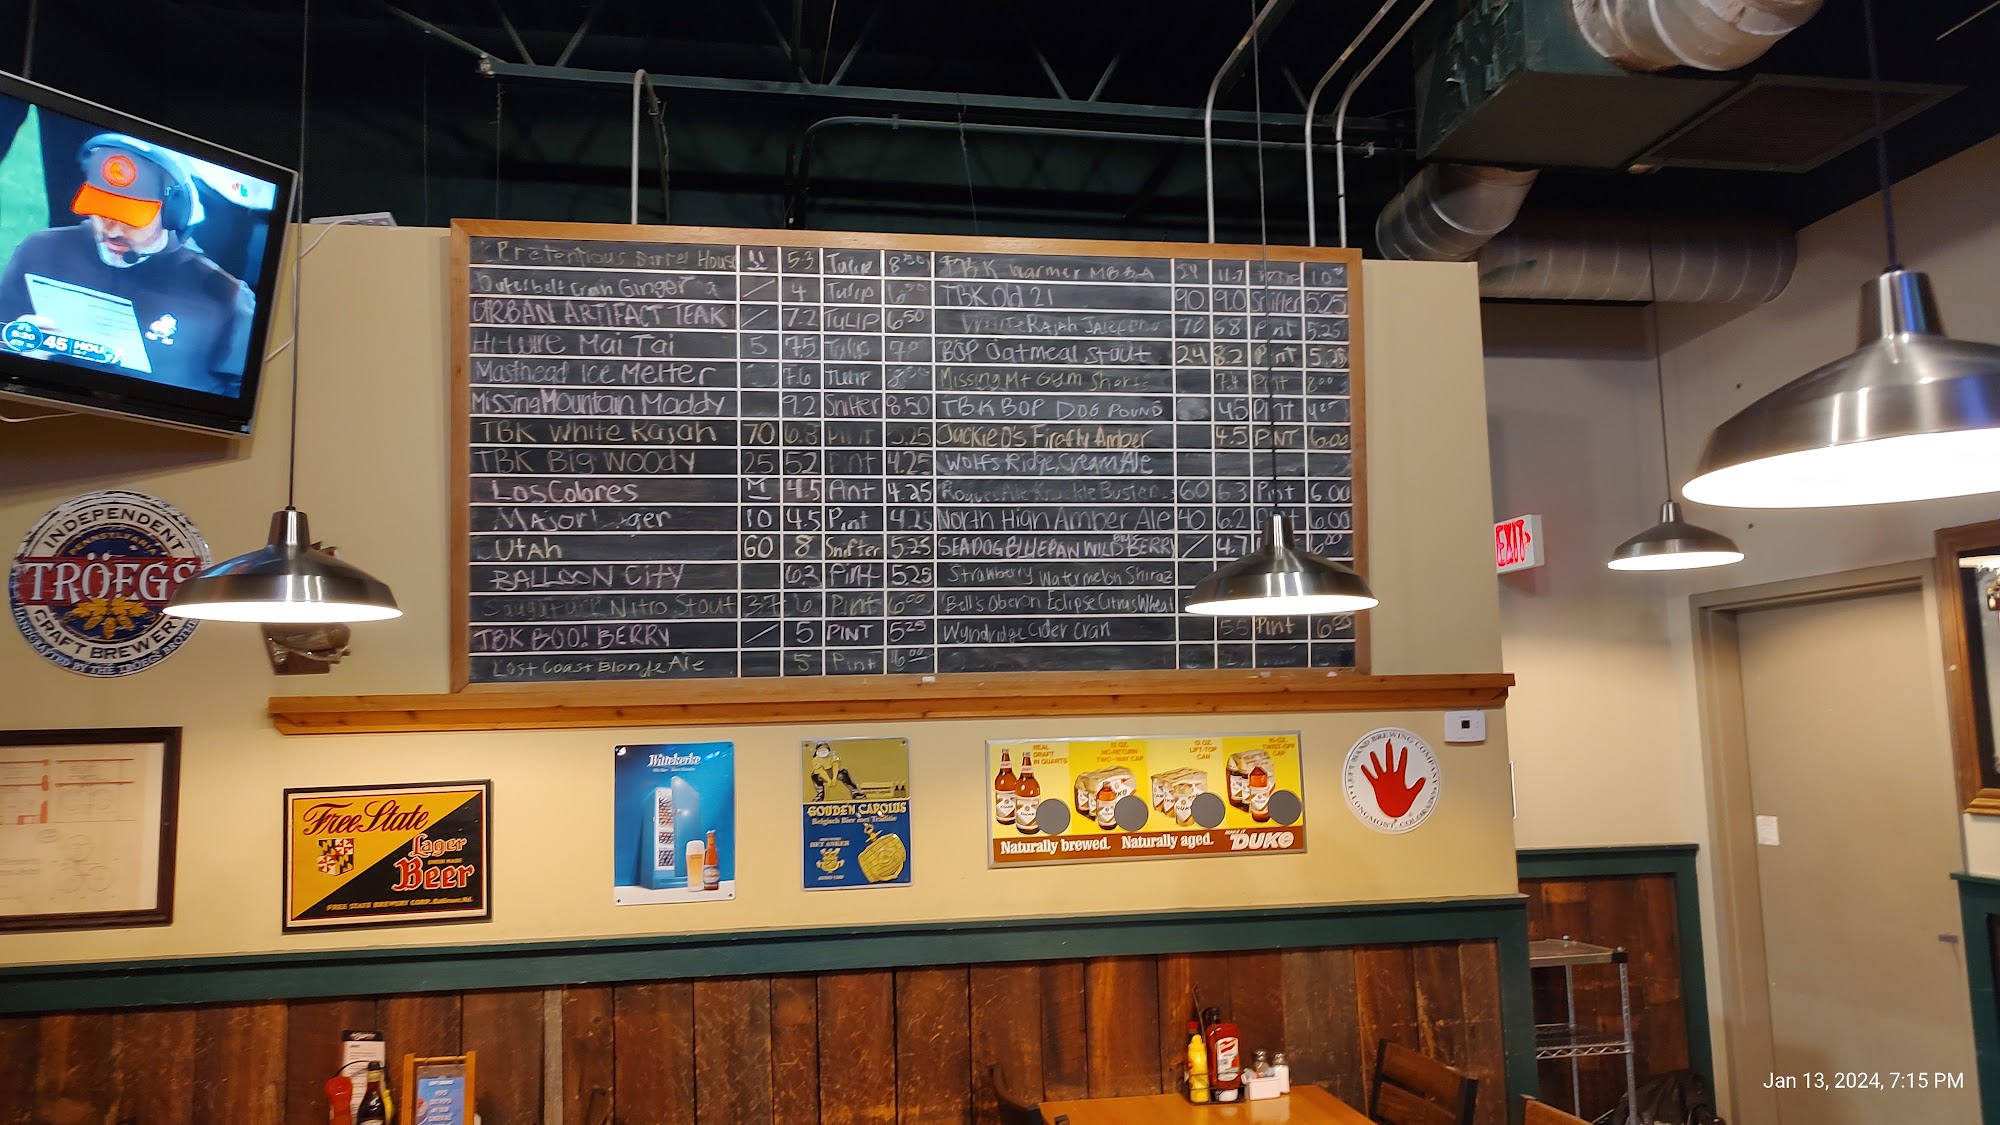 Pretentious Barrel House 11 5.3 Tulip
Outerbelt Cran Ginger / 4 Tulip 6.50
URBAN ARTIFACT TEAK / 7.2 TULIP 6.50
Hi-Wire Mai Tai 5 7.5 Tulip
Masthead Ice Melter 7.6 Tulip 8.00
Missing Mountain Maddy 9.2 Snifter 8.50
TBK White Rajah 70 6.8 Pint 5.25
TBK Big Woody 25 52 Pint 4.25
Los Colores 4.5 4.25
Major 10 4.5 Pint 4.25
Utah 60 8 Snifter 5.25
BALLOON CITY 6.2 Pint 5.25
Nitro Stout 37 6 Pint 6.00
TBK BOO! BERRY / 5 PINT 5.25
Lost Coast Blonde Ale 5 Pint 6.00
TBK Warmer MBBA
TBK Old 21 90 9.0 Snifter 5.25
White Rajah Jalepeno 70 68 Pint 5.25
BOP Oatmeal Stout 24 8.2 Pint 5.25
Missing Mt Gym Shorts 7.4 Pint 8.00
TBK BOP DOG POUND 45 Pint
Jackie O's Firefly Amber 4.5 PINT 6.00
Wolfs Ridge Cream Ale
60 6.3 Pint 6.00
North High Amber Ale 40 6.2 Pint 6.00
SEADOG BLUEPAW WILD BLUE BERRY / 4.7
Strawberry Watermelon Shiraz
Bell's Oberon Eclipse Citrus Wheat
Wyndridge Cider Cran 5.5 Pint
45 HOU
INDEPENDENT
PENNSYLVANIA
TRÖEGS
CRAFT BREWERY
HANDCRAFTED BY THE TRÖEGS BROTHERS
EXIT
Free State
Lager
Beer
FREE STATE BREWERY CORP. Baltimore, Md.
Wittekerke
GOUDEN CAROLUS
Belgisch Bier met Traditie
HET ANKER
REAL DRAFT IN QUARTS
12 OZ. NO-RETURN TWO-WAY CAP
12 OZ. LIFT-TOP CAN
16 OZ. TWIST-OFF CAP
Naturally brewed. Naturally aged. MAKE IT DUKE
LEFT HAND BREWING COMPANY
LONGMONT, COLORADO
Jan 13, 2024, 7:15 PM